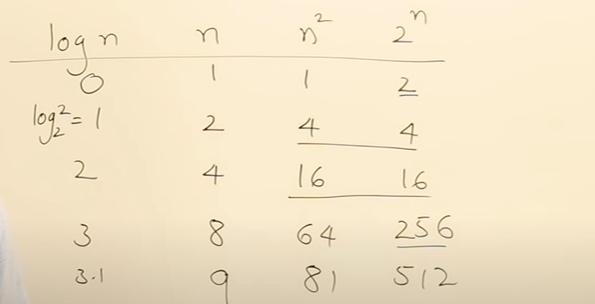 log n n n² 2ⁿ
0 1 1 2
log₂² = 1 2 4 4
2 4 16 16
3 8 64 256
3.1 9 81 512